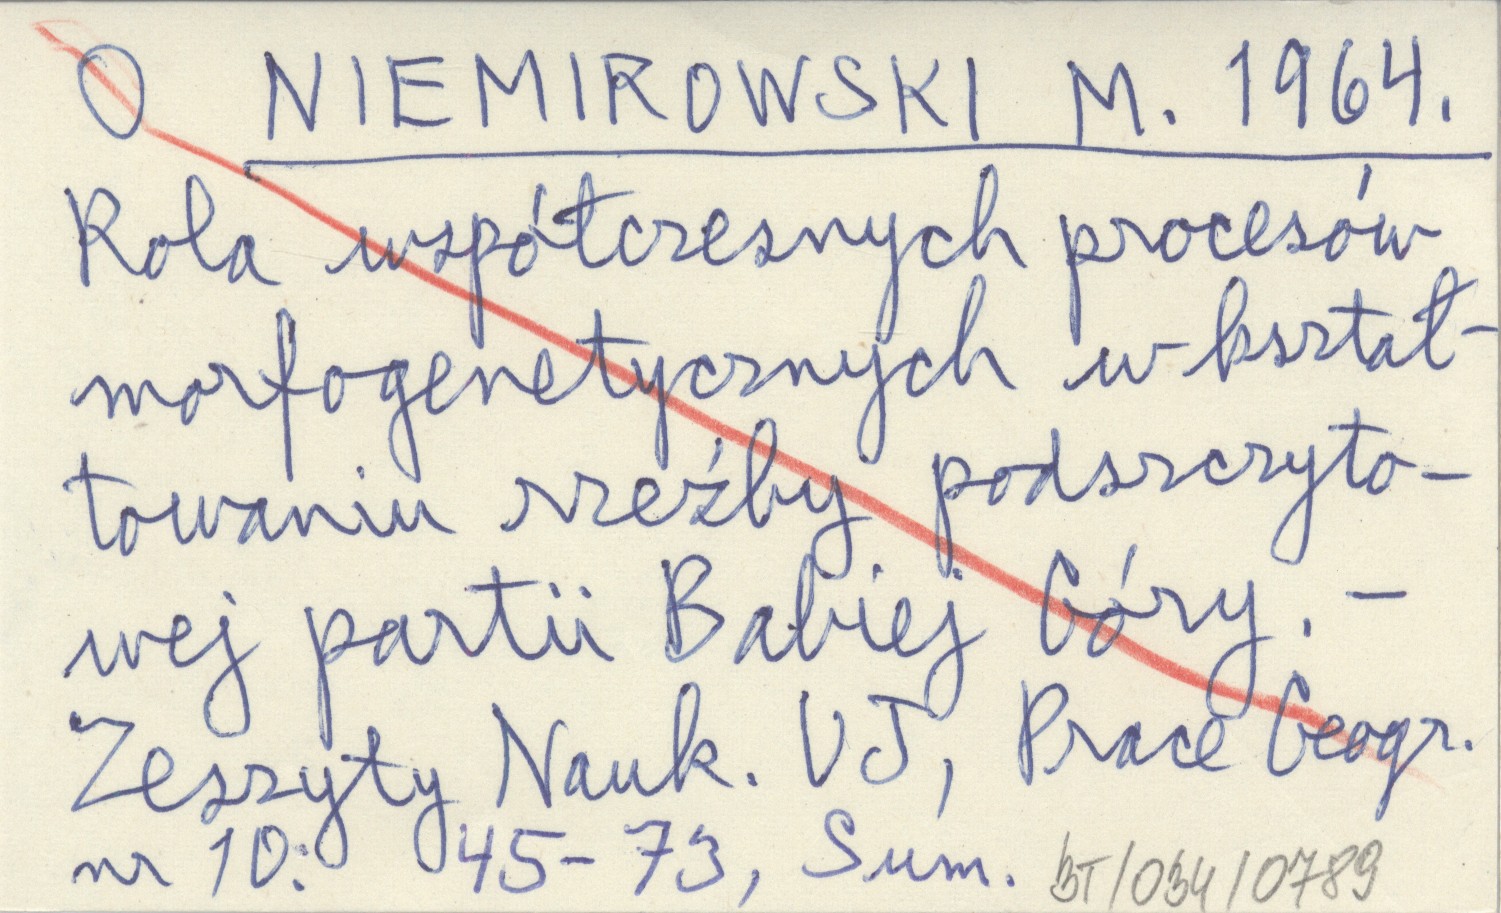 O NIEMIROWSKI M. 1964.
Rola współczesnych procesów
morfogenetycznych w kształ-
towaniu rzeźby podszczyto-
wej partii Babiej Góry. –
Zeszyty Nauk. UJ, Prace Geogr.
nr 10: 45-73, Sum. BT/034/0789